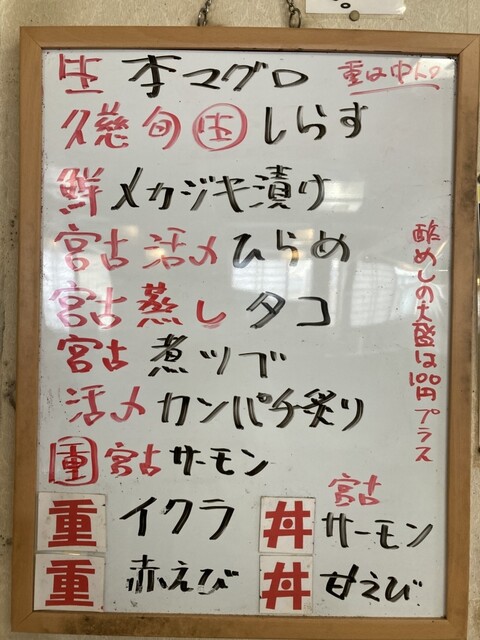 生 本マグロ
重は中トロ
久慈 旬 生 しらす
鮮 メカジキ漬け
宮古 活〆 ひらめ
宮古 蒸し タコ
宮古 煮ツブ
活〆 カンパチ炙り
重 宮古 サーモン
重 イクラ
重 赤えび
丼 宮古 サーモン
丼 甘えび
酢めしの大盛は100円プラス